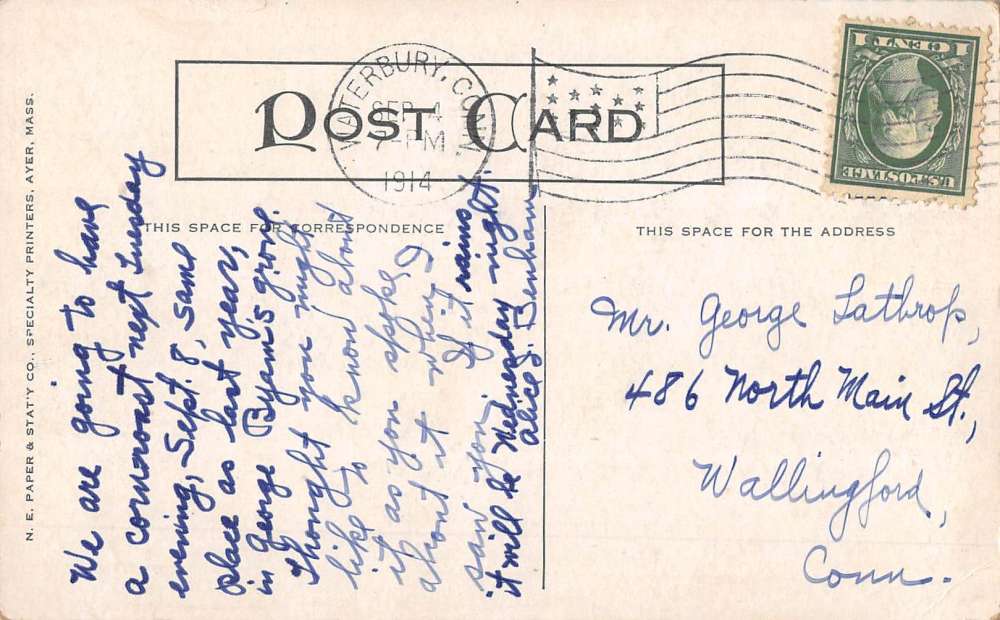 POST CARD
WATERBURY, CONN.
SEP 4
7-PM
1914
1 CENT 1
U.S. POSTAGE
THIS SPACE FOR CORRESPONDENCE
THIS SPACE FOR THE ADDRESS
N. E. PAPER & STAT'Y CO., SPECIALTY PRINTERS, AYER, MASS.
We are going to have
a cornroast next Tuesday
evening, Sept. 8, same
place as last year,
in George Byam's grove.
Thought you might
like to know about
it as you spoke
about it when I
saw you. If it rains
it will be Wednesday night.
Alice J. Benham
Mr. George Lathrop,
486 North Main St.,
Wallingford,
Conn.